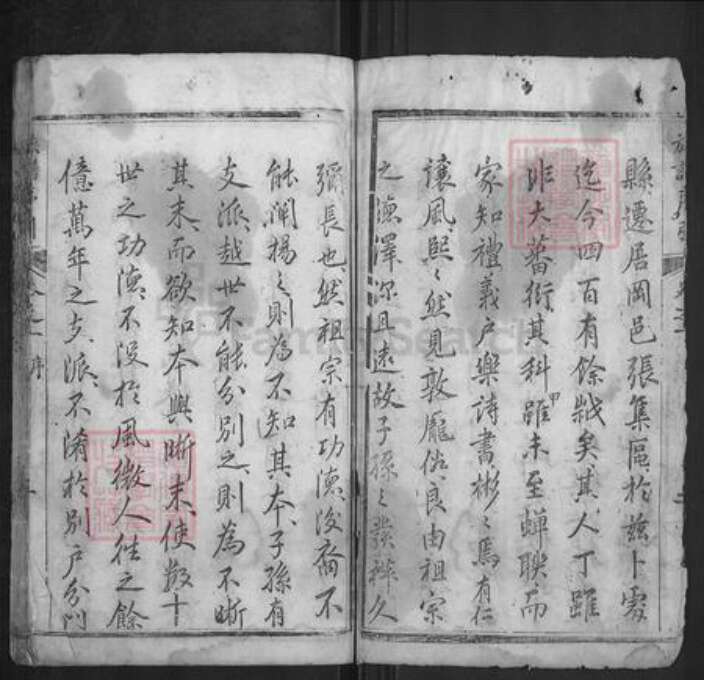 縣遷居岡邑張集區於兹卜處
迄今四百有餘歲矣其人丁雖
非大蕃衍其科甲雖未至蟬聯而
家知禮義戶樂詩書彬〻焉有仁
讓風熙〻然見敦龐俗良由祖宗
之漶澤深且遠故子孫〻業祥久
彌長也然祖宗有功德後裔不
能闡揚之則為不知其本子孫有
支派越世不能分别之則為不晰
其末而欲知本與晰末使数十
世之功德不沒於風微人徃之餘
億萬年之支派不淆於别戶分門
序
FamilySearch